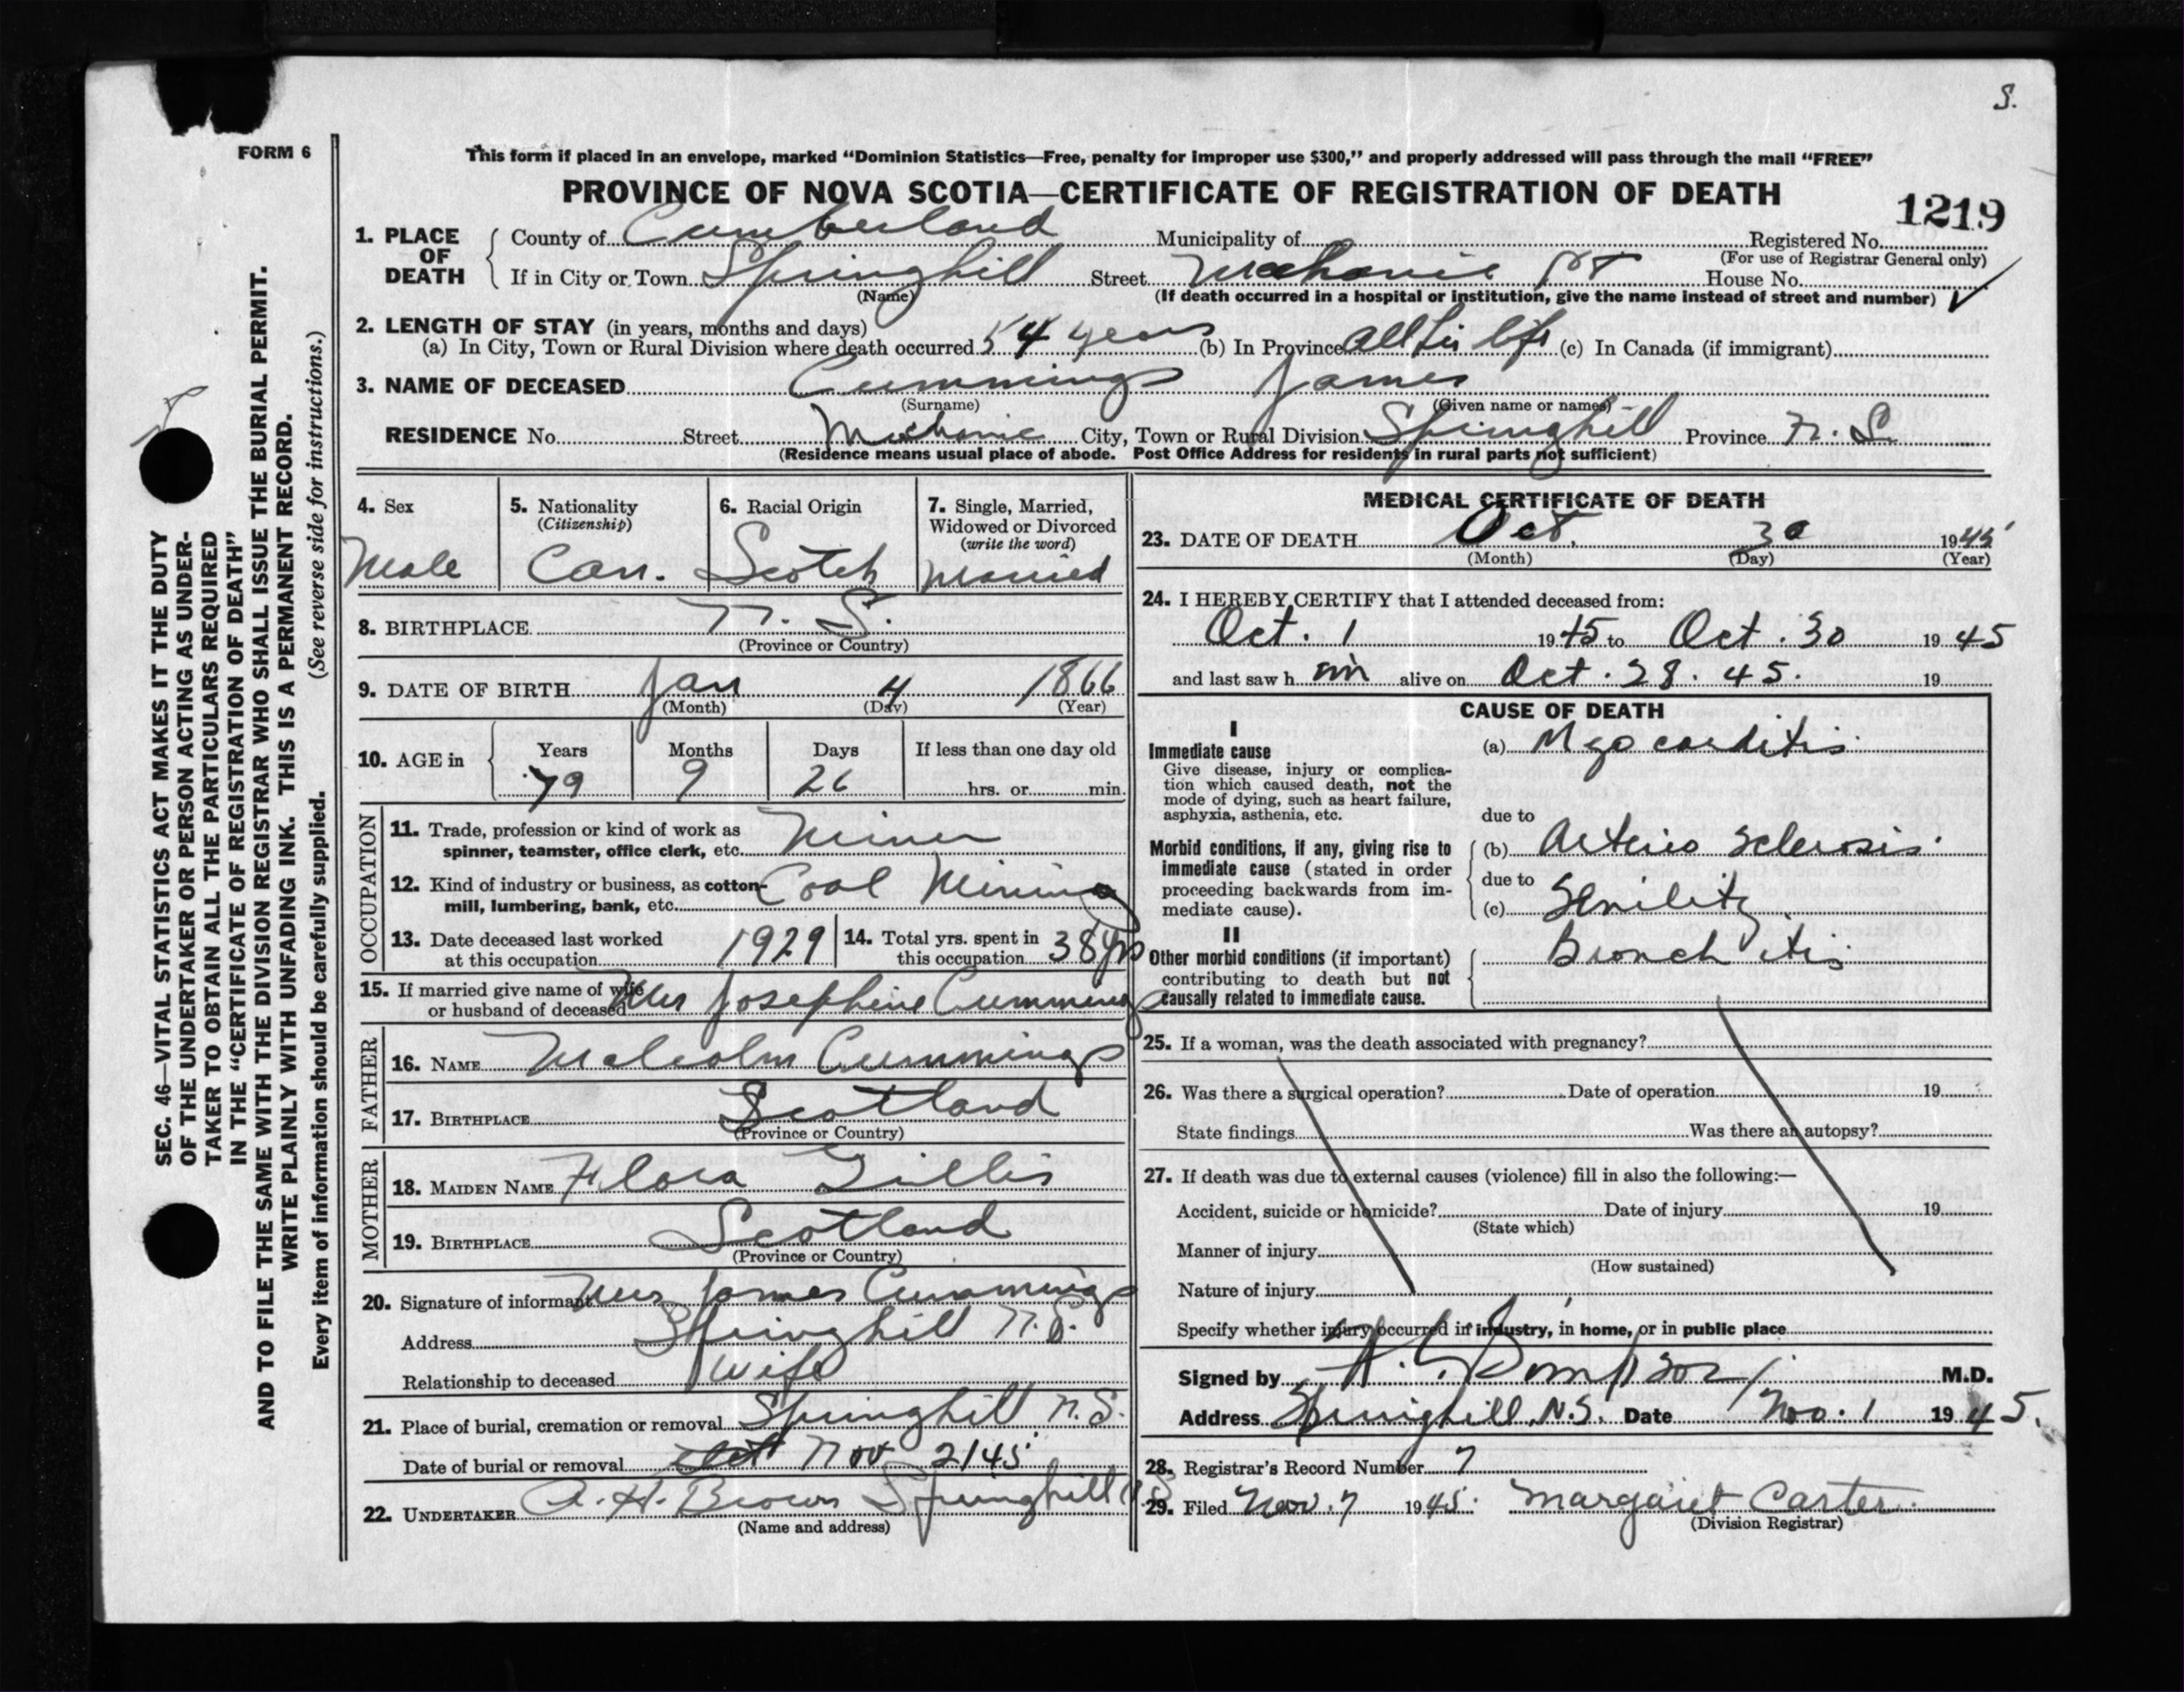 S.
FORM 6
This form if placed in an envelope, marked "Dominion Statistics—Free, penalty for improper use $300," and properly addressed will pass through the mail "FREE"
PROVINCE OF NOVA SCOTIA—CERTIFICATE OF REGISTRATION OF DEATH
1219
1. PLACE OF DEATH
County of Cumberland Municipality of Registered No.
(For use of Registrar General only)
If in City or Town Springhill Street Mechanic St House No.
(Name) (If death occurred in a hospital or institution, give the name instead of street and number) ✓
2. LENGTH OF STAY (in years, months and days)
(a) In City, Town or Rural Division where death occurred 54 years (b) In Province all his life (c) In Canada (if immigrant)
3. NAME OF DECEASED Cummings James
(Surname) (Given name or names)
RESIDENCE No. Street Mechanic City, Town or Rural Division Springhill Province N. S.
(Residence means usual place of abode. Post Office Address for residents in rural parts not sufficient)
4. Sex
Male
5. Nationality
(Citizenship)
Can.
6. Racial Origin
Scotch
7. Single, Married, Widowed or Divorced
(write the word)
Married
8. BIRTHPLACE N. S.
(Province or Country)
9. DATE OF BIRTH Jan 4 1866
(Month) (Day) (Year)
10. AGE in Years Months Days If less than one day old
79 9 26 hrs. or min.
OCCUPATION
11. Trade, profession or kind of work as
spinner, teamster, office clerk, etc. Miner
12. Kind of industry or business, as cotton-
mill, lumbering, bank, etc. Coal Mining
13. Date deceased last worked
at this occupation 1929
14. Total yrs. spent in
this occupation 38 yrs
15. If married give name of wife
or husband of deceased Mrs Josephine Cummings
FATHER
16. NAME Malcolm Cummings
17. BIRTHPLACE Scotland
(Province or Country)
MOTHER
18. MAIDEN NAME Flora Gillis
19. BIRTHPLACE Scotland
(Province or Country)
20. Signature of informant Mrs James Cummings
Address Springhill N.S.
Relationship to deceased Wife
21. Place of burial, cremation or removal Springhill N.S.
Date of burial or removal Oct Nov 2/45
22. UNDERTAKER A. H. Brown Springhill N S
(Name and address)
MEDICAL CERTIFICATE OF DEATH
23. DATE OF DEATH Oct. 30 1945
(Month) (Day) (Year)
24. I HEREBY CERTIFY that I attended deceased from:
Oct. 1 1945 to Oct. 30 1945
and last saw h im alive on Oct. 28. 45. 19
CAUSE OF DEATH
I
Immediate cause (a) Myocarditis
Give disease, injury or complica-
tion which caused death, not the
mode of dying, such as heart failure,
asphyxia, asthenia, etc. due to
Morbid conditions, if any, giving rise to (b) Arterio Sclerosis.
immediate cause (stated in order
proceeding backwards from im- due to
mediate cause). (c) Senility
II
Other morbid conditions (if important) Bronchitis
contributing to death but not
causally related to immediate cause.
25. If a woman, was the death associated with pregnancy?
26. Was there a surgical operation? Date of operation 19
State findings Was there an autopsy?
27. If death was due to external causes (violence) fill in also the following:—
Accident, suicide or homicide? Date of injury 19
(State which)
Manner of injury
(How sustained)
Nature of injury
Specify whether injury occurred in industry, in home, or in public place
Signed by Rompson M.D.
Address Springhill, N.S. Date Nov. 1 1945.
28. Registrar's Record Number 7
29. Filed Nov. 7 1945. Margaret Carter
(Division Registrar)
SEC. 46—VITAL STATISTICS ACT MAKES IT THE DUTY
OF THE UNDERTAKER OR PERSON ACTING AS UNDER-
TAKER TO OBTAIN ALL THE PARTICULARS REQUIRED
IN THE "CERTIFICATE OF REGISTRATION OF DEATH"
AND TO FILE THE SAME WITH THE DIVISION REGISTRAR WHO SHALL ISSUE THE BURIAL PERMIT.
WRITE PLAINLY WITH UNFADING INK. THIS IS A PERMANENT RECORD.
Every item of information should be carefully supplied. (See reverse side for instructions.)